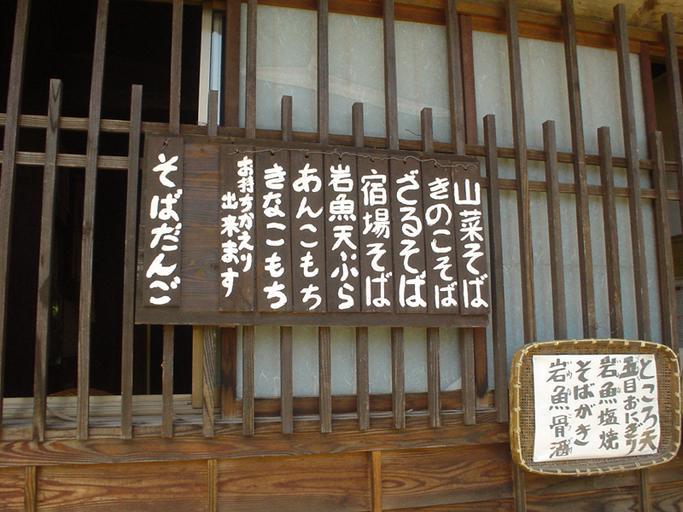 山菜そば
きのこそば
ざるそば
宿場そば
岩魚天ぷら
あんこもち
きなこもち
お持ちかえり
出来ます
そばだんご
ところ天
五目おにぎり
岩魚塩焼
そばがき
岩魚骨酒